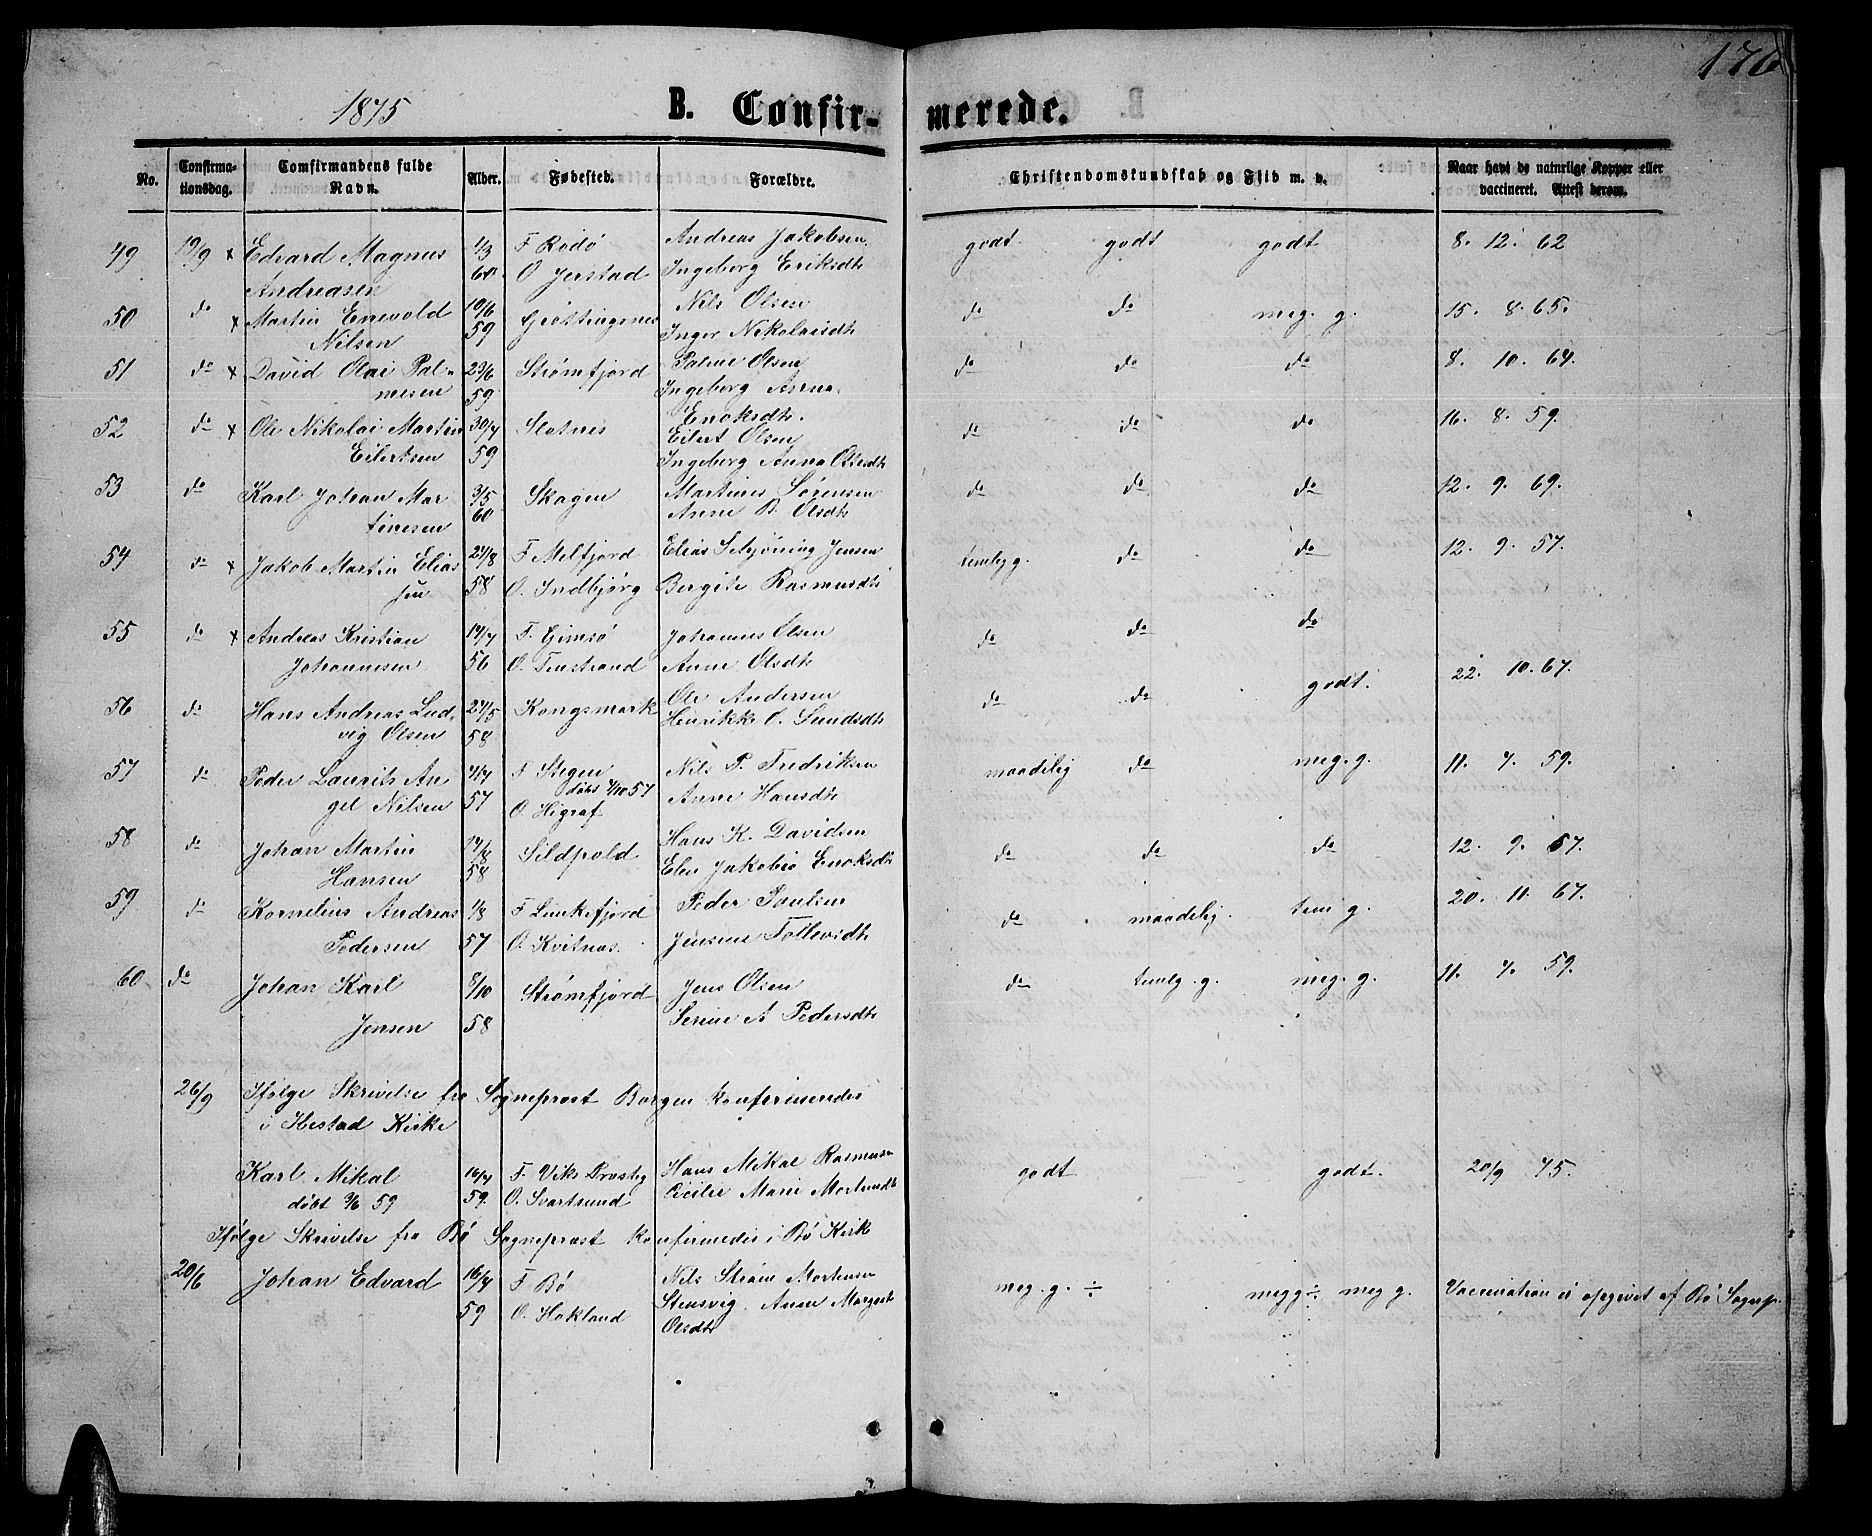 176
1875
B. Confirmerede.
No.
Confirma-
tionsdag.
Comfirmandens fulde
Navn.
Alder.
Fødested.
Forældre.
Christendomskundskab og Flid m. v.
Naar havt de naturlige Kopper eller
vaccineret. Attest derom.
49 19/9 x Edvard Magnus 4/3 F Rødø Andreas Jakobsen godt godt godt 8. 12. 62
Andreasen 60 O Jerstad Ingeborg Eriksdtr
50 do x Martin Enevold 10/6 Grøttingsnes Nils Olsen do do meg. g. 15. 8. 65.
Nilsen 59 Inger Nikolaisdtr
51 do x David Olai Pal- 23/6 Strømfjord Palme Olsen do do do 8. 10. 64.
mesen 59 Ingeborg Anna
Enoksdtr.
52 do x Ole Nikolai Martin 30/7 Slotnes Eilert Olsen do do do 16. 8. 59.
Eilertsen 59 Ingeborg Anna Olsdtr
53 do Karl Johan Mar 3/5 Skagen Martines Sørensen do do do 12. 9. 69.
tinesen 60 Anne B. Olsdtr
54 do x Jakob Martin Elias 27/8 F Melfjord Elias Jensen temlig g. do do 12. 9. 57.
sen 58 O. Indbjørg Bergite Rasmusdtr
55 do x Andreas Kristian 17/7 F. Gimsø Johannes Olsen do do do
Johannesen 56 O. Finstrand Anne Olsdtr 22. 10. 67.
56 do Hans Andreas Lud- 27/5 Kongsmark Ole Andersen do do godt.
vig Olsen 58 Henrikke O. Sundsdtr
57 do Peder Laurits An 4/7 F Stegen Nils P. Fredriksen maadelig do meg. g. 11. 7. 59.
døbt 4/10 57
gel Nilsen 57 O. Higraf Anne Hansdtr
58 do Johan Martin 17/8 Sildpold Hans K. Davidsen do do do 12. 9. 57.
Hansen 58 Elen Jakobia Enoksdtr
59 do Kornelius Andreas 4/8 F Peder Paulsen do maadelig. tem g. 20. 11. 67.
Pedersen 57 O. Kvitnes. Jensine Tollevsdtr
60 do Johan Karl 8/10 Strømfjord Jens Olsen do temlg. g. meg. g. 11. 7. 59.
Jensen 58 Serine A Pedersdtr
26/9 Ifølge Skrivelse fra Sogneprest Borgen konfirmerdes
i Hestad Kirke
Karl Mikal 16/7 F. Vik Brøstg Hans Mikal Rasmusn godt godt. 20/9 75.
døbt 3/6 59 59. O. Svartsund Cecilie Marie Mortensdtr
Ifølge Skrivelse fra Bø Sogneprest konfirmedes i Bø Kirk
20/6 Johan Edvard 16/7 F Bø Nils Strøm Mortensen meg. g. ÷ megg ÷ meg g. Vaccination ei opgivet af Bø Sognep.
59 O. Hokland Stensvig. Anne Margrete
Olsdtr